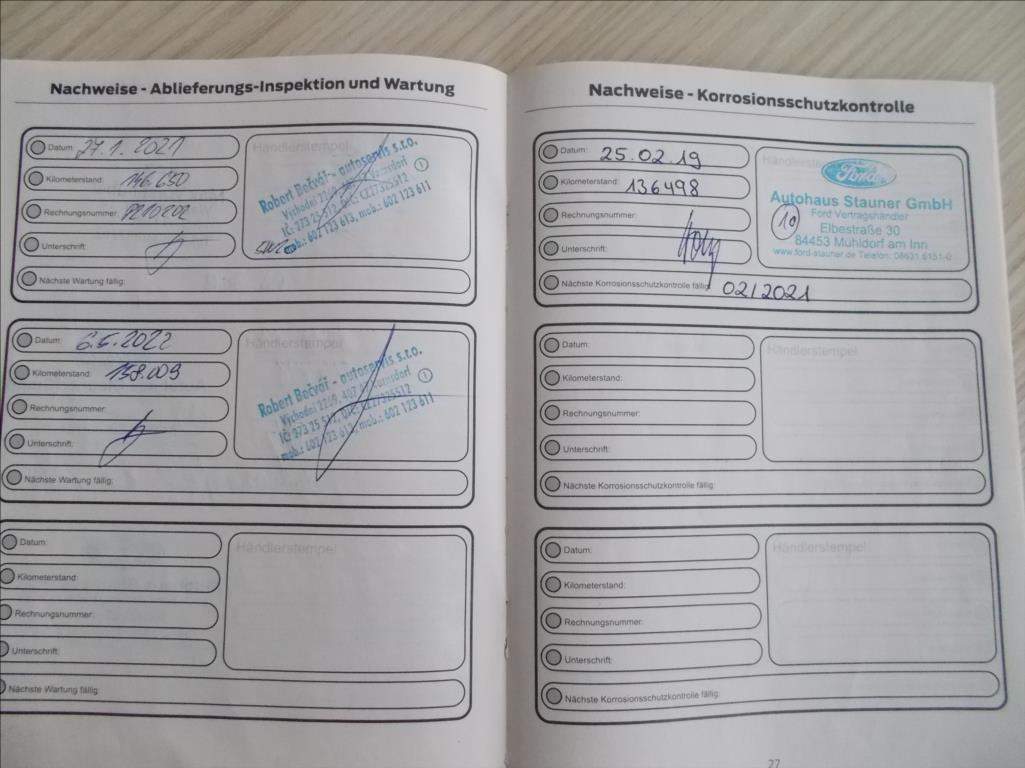 Nachweise - Ablieferungs-Inspektion und Wartung
Datum: 27.1.2021
Kilometerstand: 146.650
Rechnungsnummer: P210202
Unterschrift:
Nächste Wartung fällig:
Händlerstempel
Robert Bočvář - autoservis s.r.o.
mob.: 602 123 613, mob.: 602 123 611
Datum: 6.5.2022
Kilometerstand: 158.009
Rechnungsnummer:
Unterschrift:
Nächste Wartung fällig:
Händlerstempel
Robert Bočvář - autoservis s.r.o.
mob.: 602 123 613, mob.: 602 123 611
Datum:
Kilometerstand:
Rechnungsnummer:
Unterschrift:
Nächste Wartung fällig:
Händlerstempel
Nachweise - Korrosionsschutzkontrolle
Datum: 25.02.19
Kilometerstand: 136498
Rechnungsnummer:
Unterschrift:
Nächste Korrosionsschutzkontrolle fällig: 02/2021
Ford
Autohaus Stauner GmbH
Ford Vertragshändler
10
Elbestraße 30
84453 Mühldorf am Inn
www.ford-stauner.de Telefon: 08631 6151-0
Datum:
Kilometerstand:
Rechnungsnummer:
Unterschrift:
Nächste Korrosionsschutzkontrolle fällig:
Händlerstempel
Datum:
Kilometerstand:
Rechnungsnummer:
Unterschrift:
Nächste Korrosionsschutzkontrolle fällig:
Händlerstempel
27